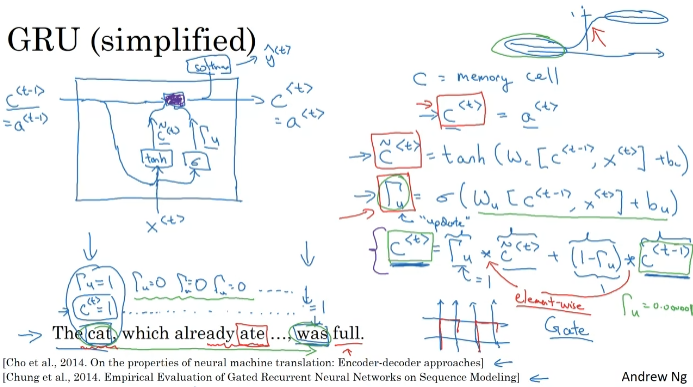 GRU (simplified)
softmax → ŷ<t>
c<t-1>
= a<t-1>
c<t>
= a<t>
c̃<t>
Γu
tanh
σ
x<t>
C = memory cell
c<t> = a<t>
c̃<t> = tanh (Wc [c<t-1>, x<t>] + bc)
Γu = σ (Wu [c<t-1>, x<t>] + bu)
"update"
c<t> = Γu * c̃<t> + (1-Γu) * c<t-1>
= 1
element-wise
Gate
Γu = 0.000001
Γu=1 Γu=0 Γu=0 Γu=0 .....
c<t>=1 ..... =1
The cat, which already ate ..., was full.
[Cho et al., 2014. On the properties of neural machine translation: Encoder-decoder approaches]
[Chung et al., 2014. Empirical Evaluation of Gated Recurrent Neural Networks on Sequence Modeling]
Andrew Ng